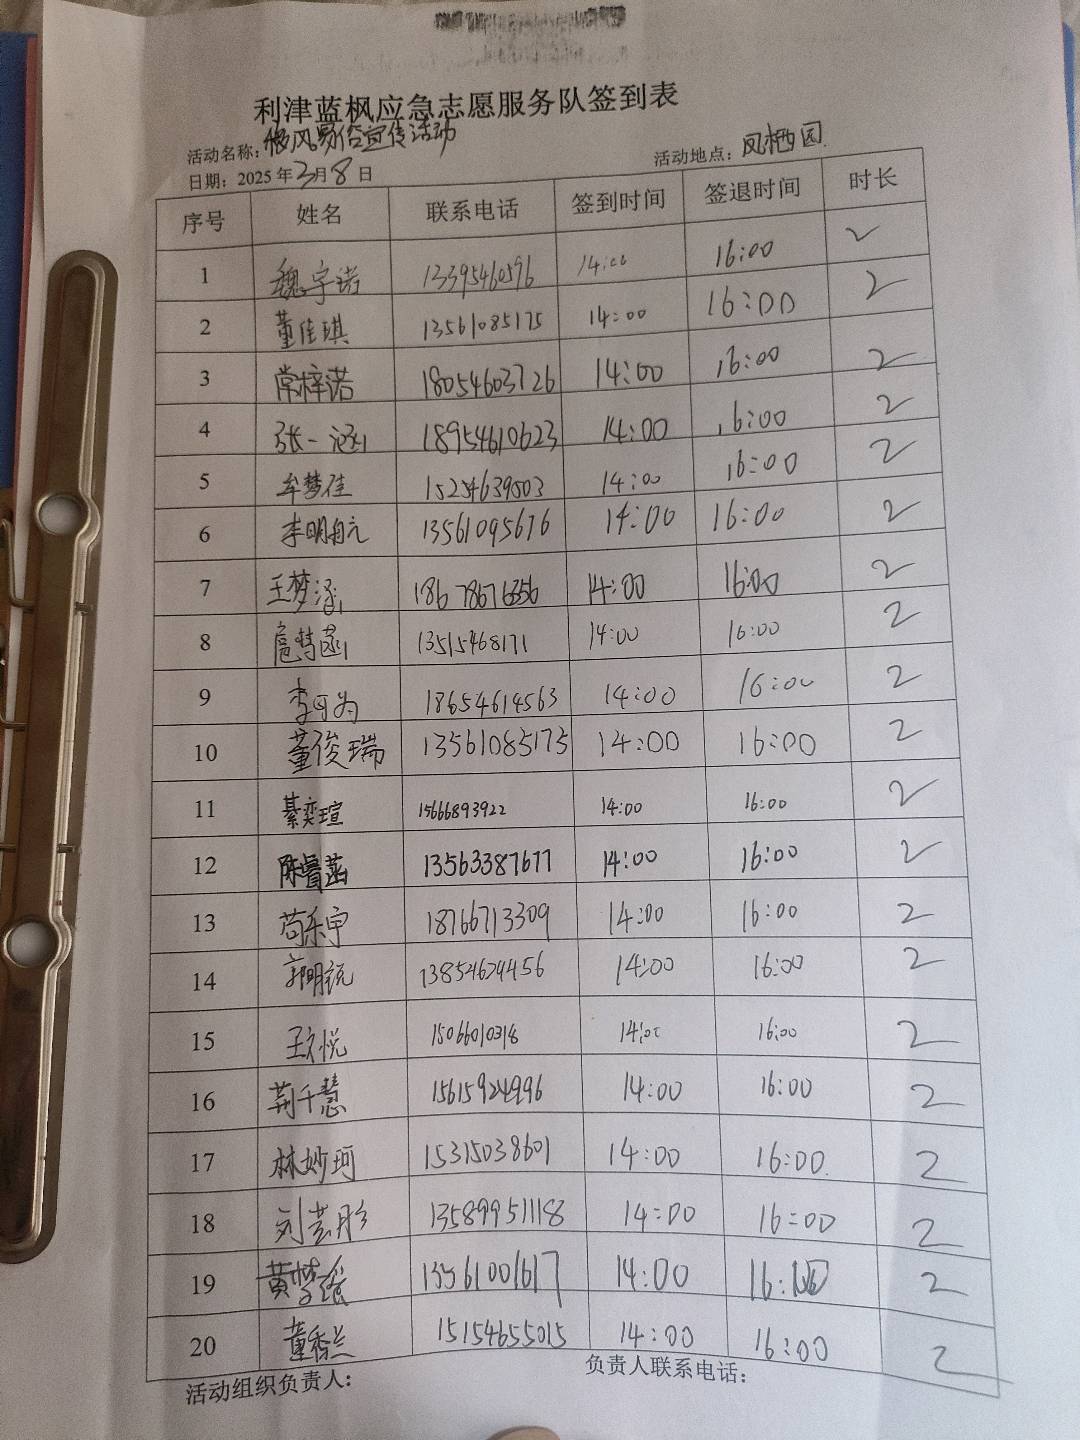 利津蓝枫应急志愿服务队签到表
活动名称：移风易俗宣传活动 活动地点：凤栖园
日期：2025年3月8日
序号 姓名 联系电话 签到时间 签退时间 时长
1 魏宇诺 13395460596 14:00 16:00 2
2 董佳琪 13561085175 14:00 16:00 2
3 常梓诺 18054603726 14:00 16:00 2
4 张一涵 18954610623 14:00 16:00 2
5 牟梦佳 15254639503 14:00 16:00 2
6 李明航 13561095676 14:00 16:00 2
7 王梦涵 14:00 16:00 2
8 13515468171 14:00 16:00 2
9 李可为 18654614563 14:00 16:00 2
10 董俊瑞 13561085175 14:00 16:00 2
11 綦奕瑄 15666893922 14:00 16:00 2
12 陈睿菡 13563387677 14:00 16:00 2
13 苟乐宇 18766713309 14:00 16:00 2
14 郭明锐 13854624456 14:00 16:00 2
15 王文悦 15066010318 14:00 16:00 2
16 荆千慧 15615924996 14:00 16:00 2
17 林妙珂 15315038601 14:00 16:00 2
18 刘芸彤 13589951118 14:00 16:00 2
19 黄梦瑶 13561001617 14:00 16:00 2
20 董香兰 15154655015 14:00 16:00 2
活动组织负责人： 负责人联系电话：